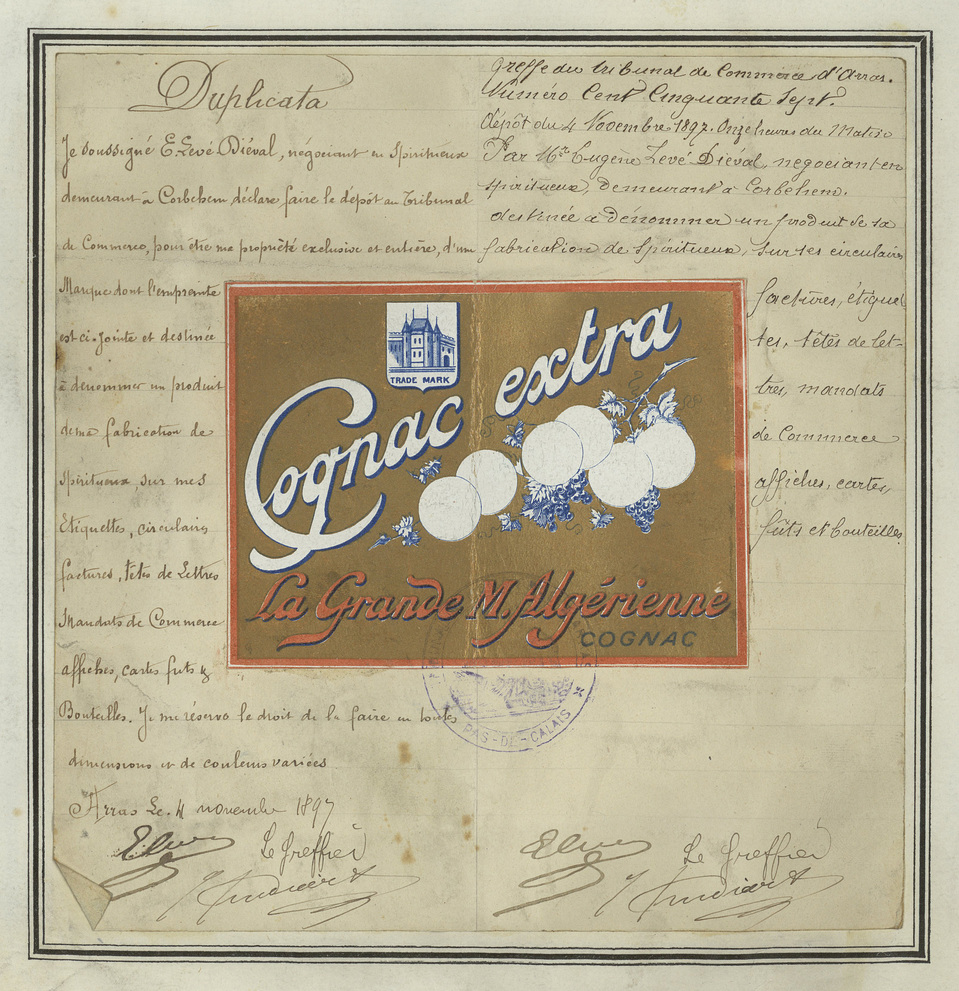 Duplicata
Je soussigné E. Levé-Diéval, négociant en Spiritueux
demeurant à Corbehem déclare faire le dépôt au Tribunal
de Commerce, pour être ma propriété exclusive et entière, d'une
Marque dont l'empreinte
est ci-jointe et destinée
à dénommer un produit
de ma fabrication de
Spiritueux, sur mes
Etiquettes, circulaires
factures, têtes de Lettres
Mandats de Commerce
affiches, cartes futs &
Bouteilles. Je me réserve le droit de la faire en toutes
dimensions et de couleurs variées
Arras Le. 4 novembre 1897
Le Greffier
Greffe du tribunal de Commerce d'Arras.
Numéro Cent Cinquante Sept.
dépôt du 4 Novembre 1897. Onze heures du Matin
Par Mr Eugène Levé Diéval, negociant en
spiritueux, demeurant à Corbehem.
destinée à dénommer un produit de sa
fabrication de Spiritueux, sur ses circulaires
factures, étiquet
tes, têtes de let-
tres, mandats
de Commerce
affiches, cartes,
fûts et bouteilles.
Le Greffier
TRADE MARK
Cognac extra
La Grande M. Algérienne
COGNAC
PAS-DE-CALAIS